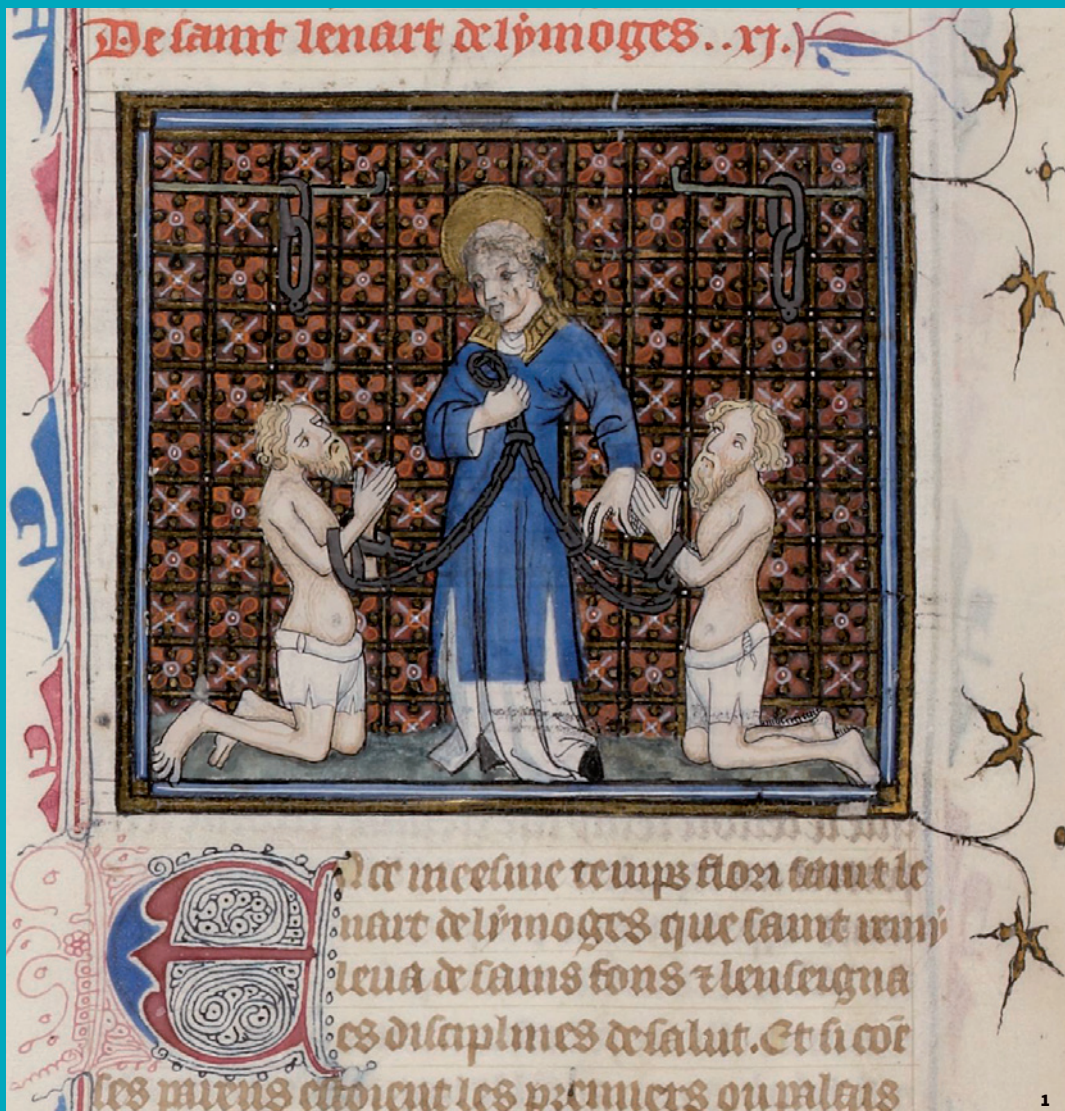 De saint lenart de lymoges..xj.
En ce meesme temps flori saint le
nart de lymoges que saint remy
leua de sains fons ⁊ lenseigna
es disciplines de salut. Et si cõe
ses parens estoient les premiers ou palais
1